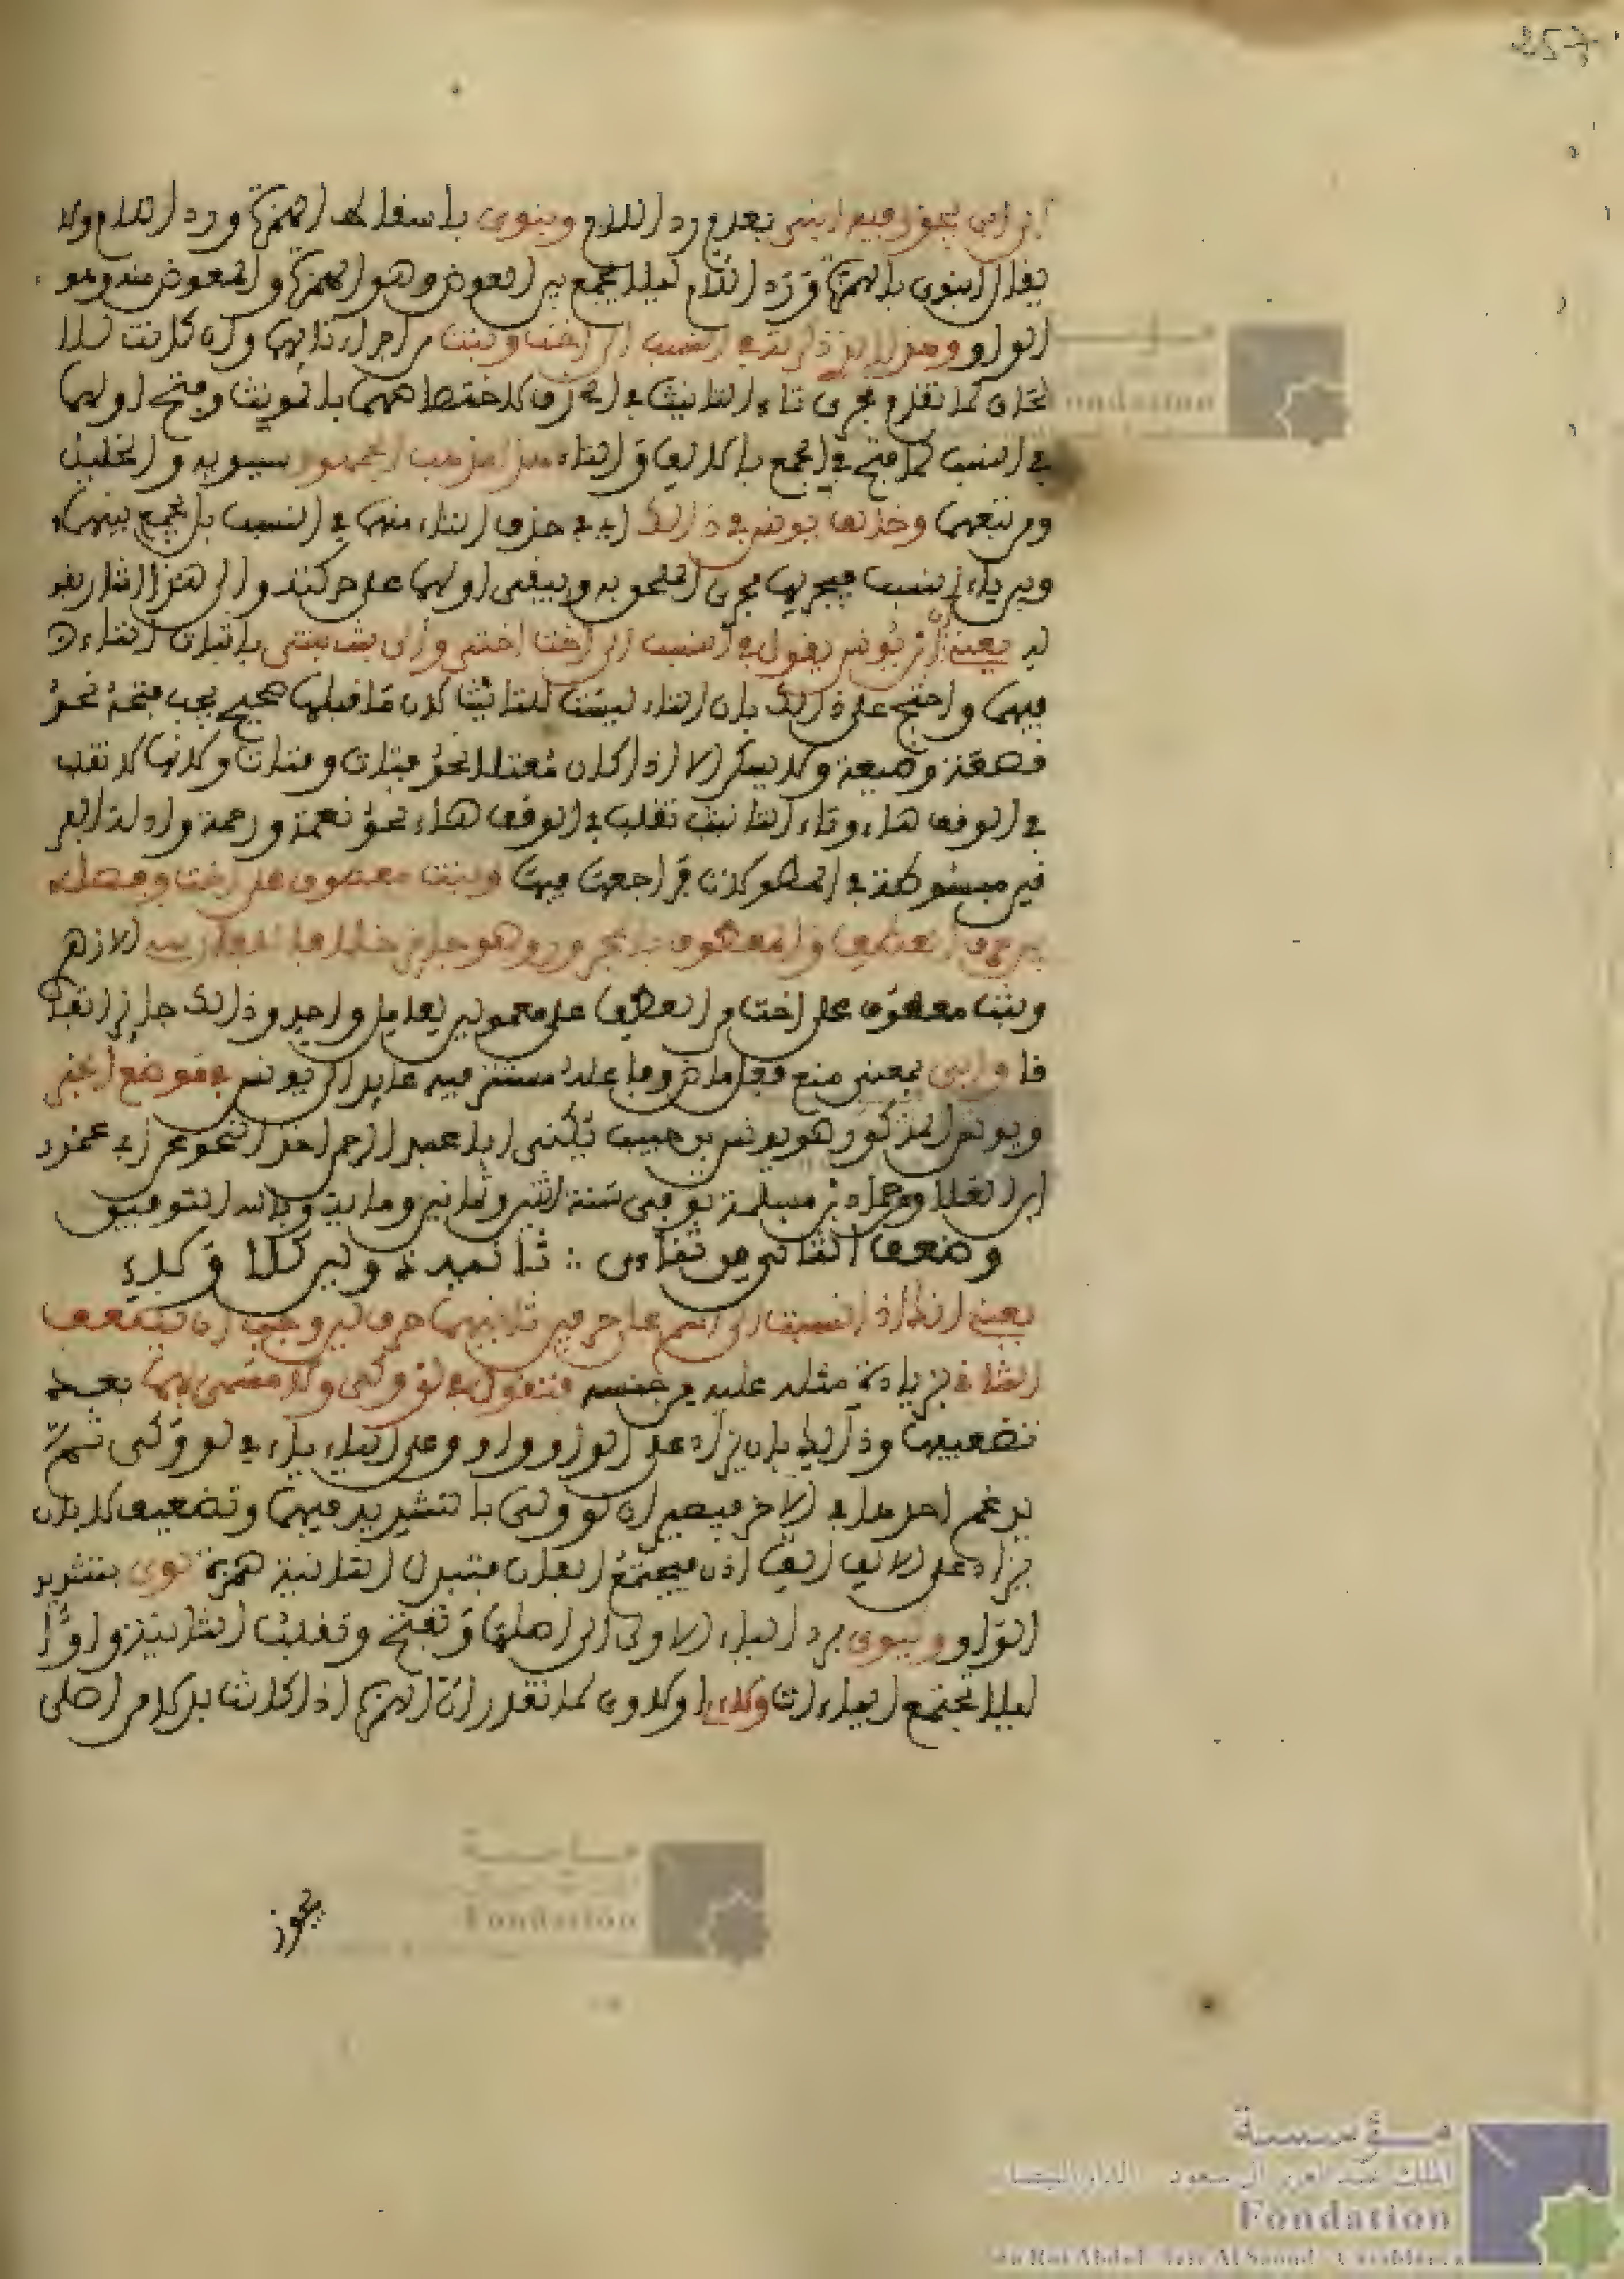 257
ابن أبي يجوز فيه ابني بعدم رد اللام وبنوي بإسقاط الهمزة ورد اللام ولا
يقال ابنوي بالهمزة ورد اللام ليلا يجمع بين العوض وهو الهمزة والمعوض منه وهو
الواو في النسب إلى أخت وبنت من إجراء تائهما وإن كانت
كما تقدم مجرى تاء التانيث في الحذف لاختصاصهما بالمونث وفتح أولهما
في النسب كما فتح في الجمع بالالف والتاء هذا مذهب الجمهور سيبويه والخليل
ومن تبعهما وخالف يونس في ذلك أي في حذف التاء منهما في النسب بالجمع بينهما
وبين ياء النسب فيجريها مجرى الملحق به ويبقى أولهما على حركته وإلى هذا أشار بقو
له يعني أن يونس يقول في النسب إلى أخت أختي وإلى بنت بنتي بإثبات التاء
فيهما واحتج على ذلك بان التاء ليست للتانيث لان ما قبلها صحيح يجب فتحه نحو
قصعة وضيعة ولا يسكن إلا إذا كان معتلا نحو فتات وقنات ولانها لا تقلب
في الوقف هاء وتاء التانيث تقلب في الوقف هاء نحو نعمة ورحمة وادلة
مبسوطة في المطولات فراجعها فيها وبنت معطوف على أخت وفصل
بين حرف العطف والمعطوف بالمجرور وهو جايز خلافا
وبنت معطوف على أخت والعطف على معمولين لعامل واحد وذلك جايز اتفا
قا وابى بمعنى منع فعل ماض وفاعله مستتر فيه عايد إلى يونس في موضع الخبر
ويونس المذكور هو يونس بن حبيب يكنى أبا عبد الرحمن أخذ النحو عن أبي عمرو
ابن العلا وحماد بن سلمة توفي سنة اثنين وثمانين وماية وبالله التوفيق
وضعف الثاني من ثنائي ∴ ثانيه ذو لين كلا ولاءي
يعني انك إذا نسبت إلى اسم على حرفين ثانيهما حرف لين وجب أن تضعف
الثاني بزيادة مثله عليه من جنسه فتقول في لو وكي ولا مسمى بها بعد
تضعيفها وذلك بان يزاد على الواو واو وعلى الياء ياء في لو وكي ثم
يدغم احدهما في الاخر فيصيران لو وكي بالتشديد فيهما وتضعيف لا بان
يزاد على الالف الف اذن فيجتمع الفان فتبدل الثانية همزة لوي بتشديد
الواو وكيوي برد الياء الاولى إلى اصلها وتفتح وتقلب الثانية واوا
ليلا تجتمع الياءات ولاءي أو لاوي كما تقدر أن الهمزة إذا كانت بدلا من اصلي
يجوز
مؤسسة
الملك عبد العزيز آل سعود الدار البيضاء
Fondation
du Roi Abdul-Aziz Al Saoud Casablanca